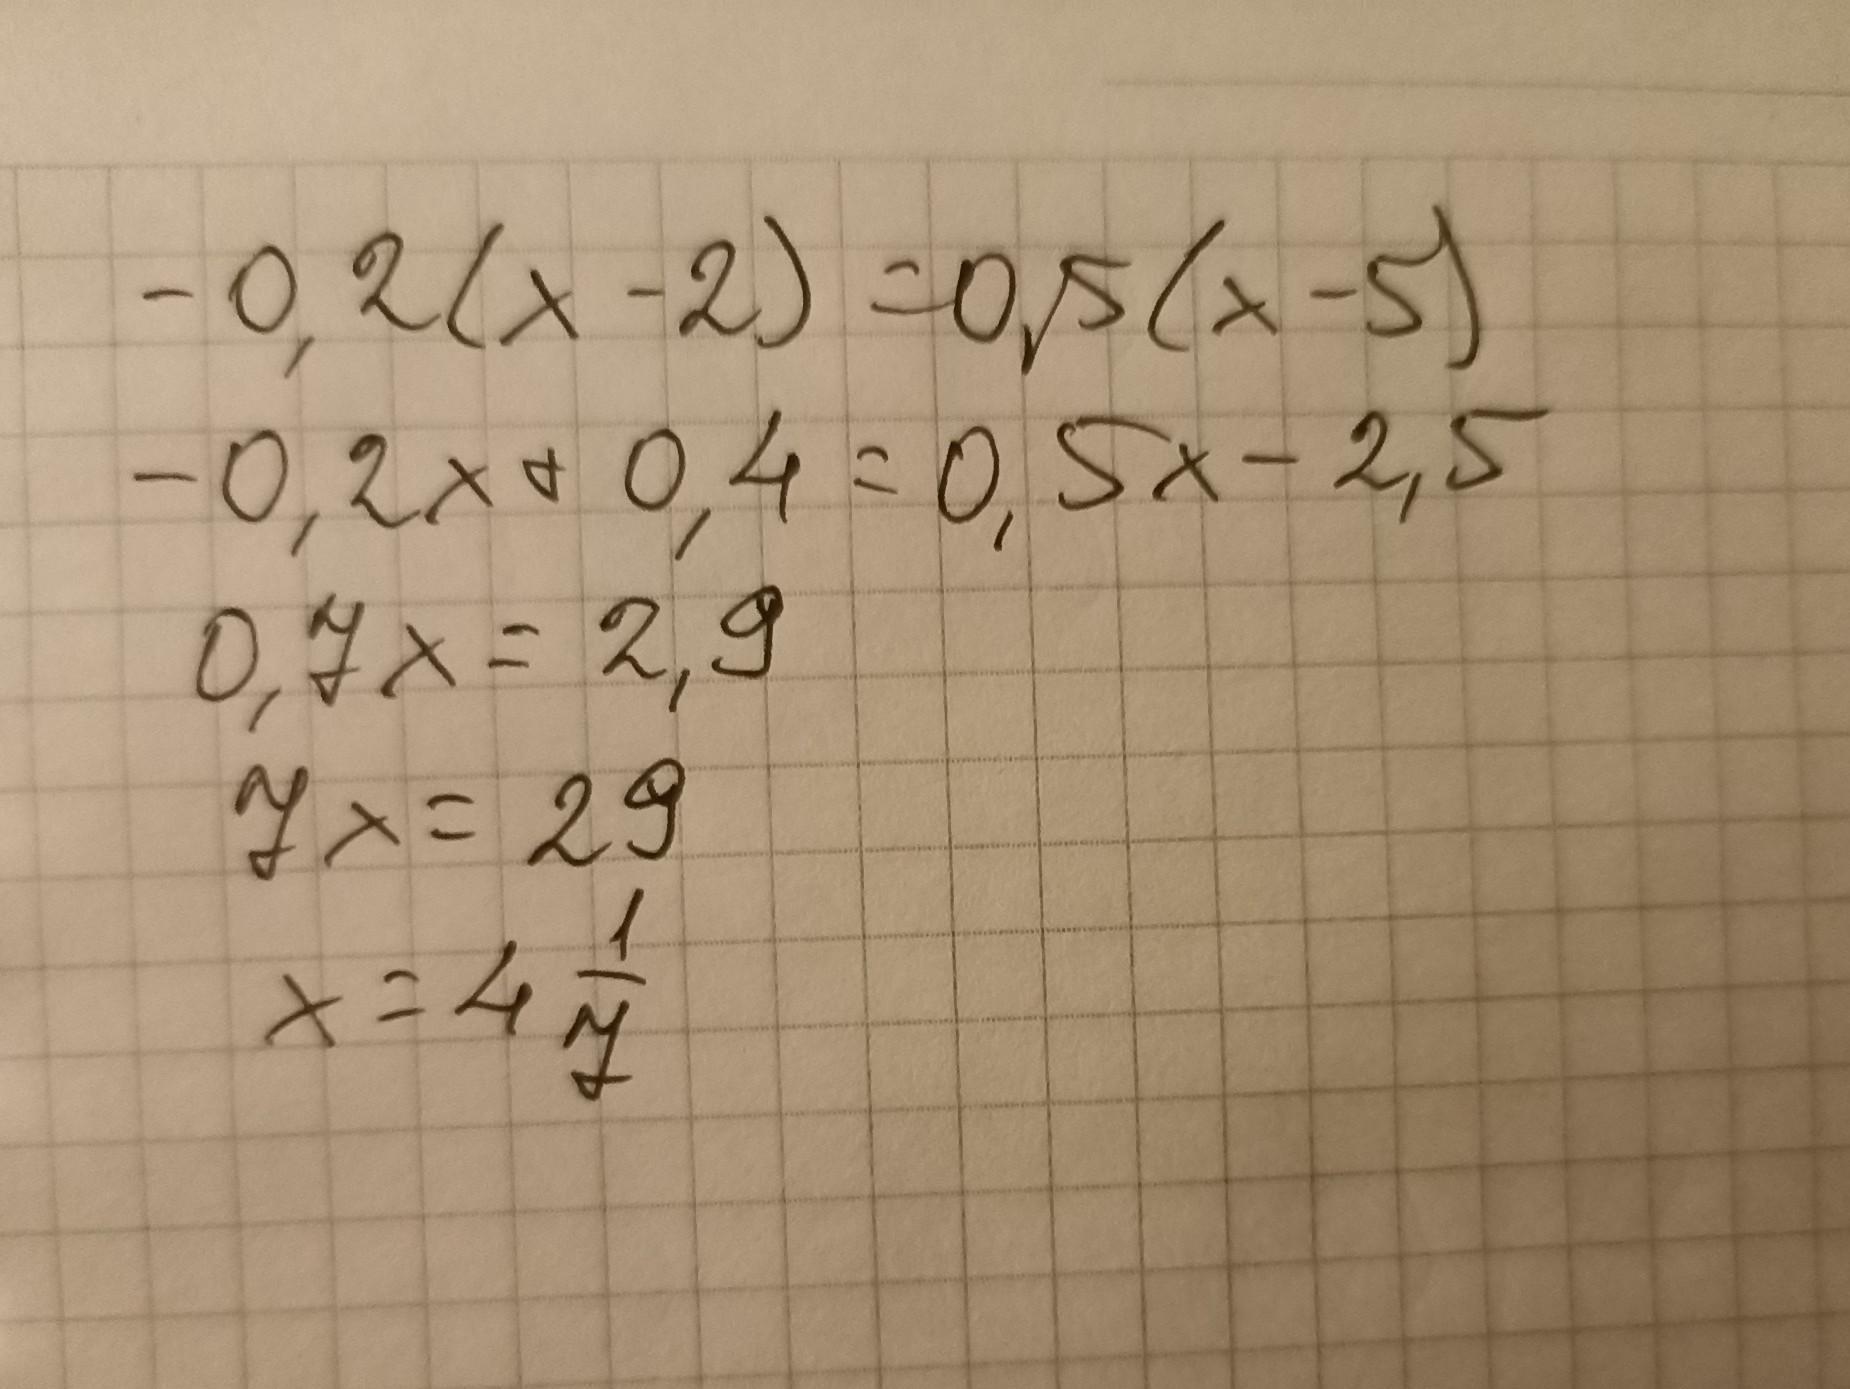 -0,2(x-2)=0,5(x-5)
-0,2x+0,4=0,5x-2,5
0,7x=2,9
7x=29
x=4 1/7